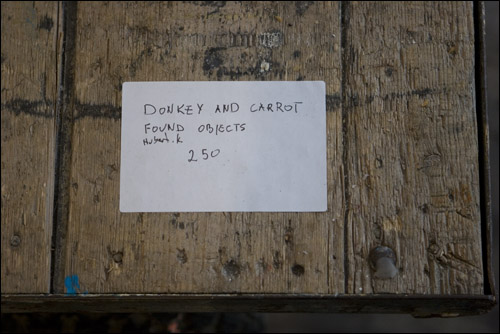 DONKEY AND CARROT
FOUND OBJECTS
Hubert.K
250